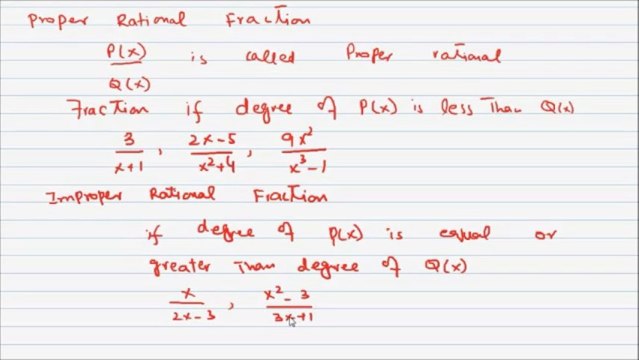 Proper Rational Fraction
P(x)/Q(x) is called Proper rational
Fraction if degree of P(x) is less Than Q(x)
3/(x+1), (2x-5)/(x²+4), 9x²/(x³-1)
Improper Rational Fraction
if degree of P(x) is equal or
greater Than degree of Q(x)
x/(2x-3), (x²-3)/(3x+1)